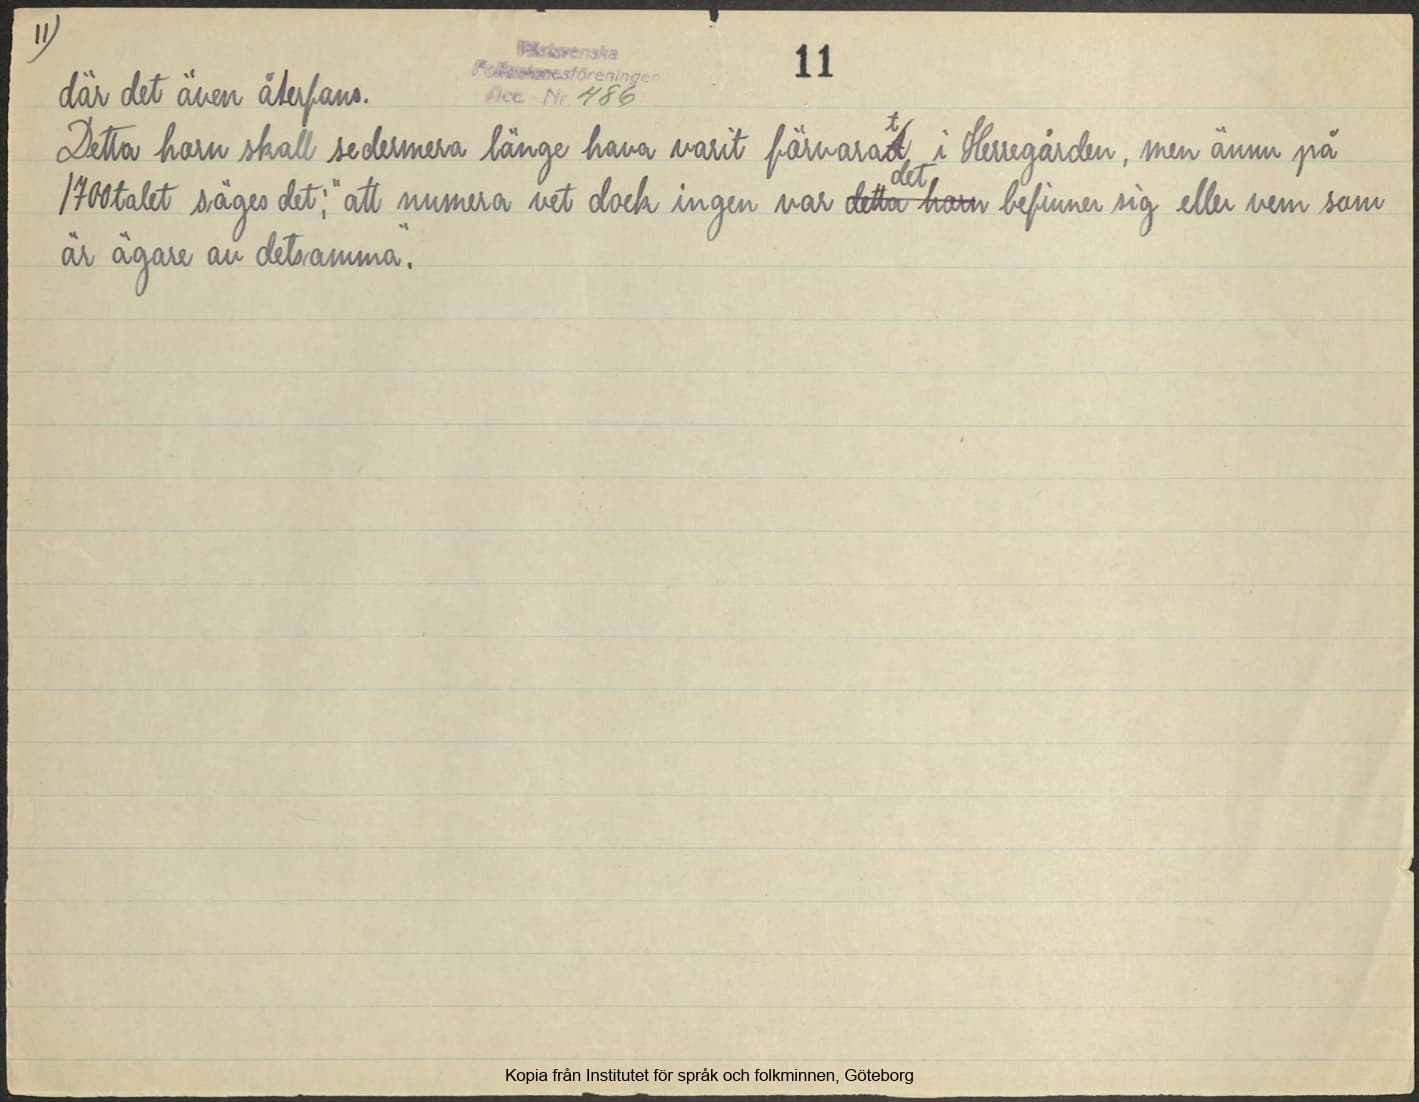 11)
Västsvenska
Folkminnesföreningen
Acc - Nr 486
11
där det även återfans.
Detta horn skall sedermera länge hava varit förvarat i Herregården, men ännu på
1700talet säges det; "att numera vet dock ingen var det detta horn befinner sig eller vem som
är ägare av detsamma".
Kopia från Institutet för språk och folkminnen, Göteborg